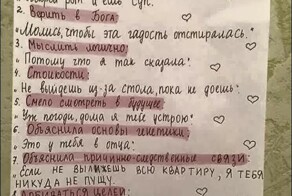 рот и ешь суп."
2. Верить в Бога
"Молись, чтобы эта гадость отстиралась."
3. Мыслить логично
"Потому что я так сказала."
4. Стойкости
"Не выйдешь из-за стола, пока не доешь."
5. Смело смотреть в будущее
"Уж погоди, дома я тебе устрою"
6. Объяснила основы генетики
"Это у тебя в отца."
7. Объяснила причинно-следственные связи
"Если не вылижешь всю квартиру, я тебя
никуда не пущу."
целей